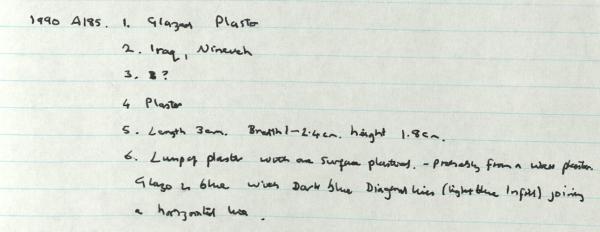 1990 A185. 1. Glazed Plaster
2. Iraq, Nineveh
3. B?
4 Plaster
5. Length 3cm. Breadth - 2.4cm. height 1.8cm.
6. Lump of plaster with one surface plastered. - Probably from a wall plaster.
Glaze is blue with Dark blue Diagonal lines (light blue infill) joining
a horizontal line.